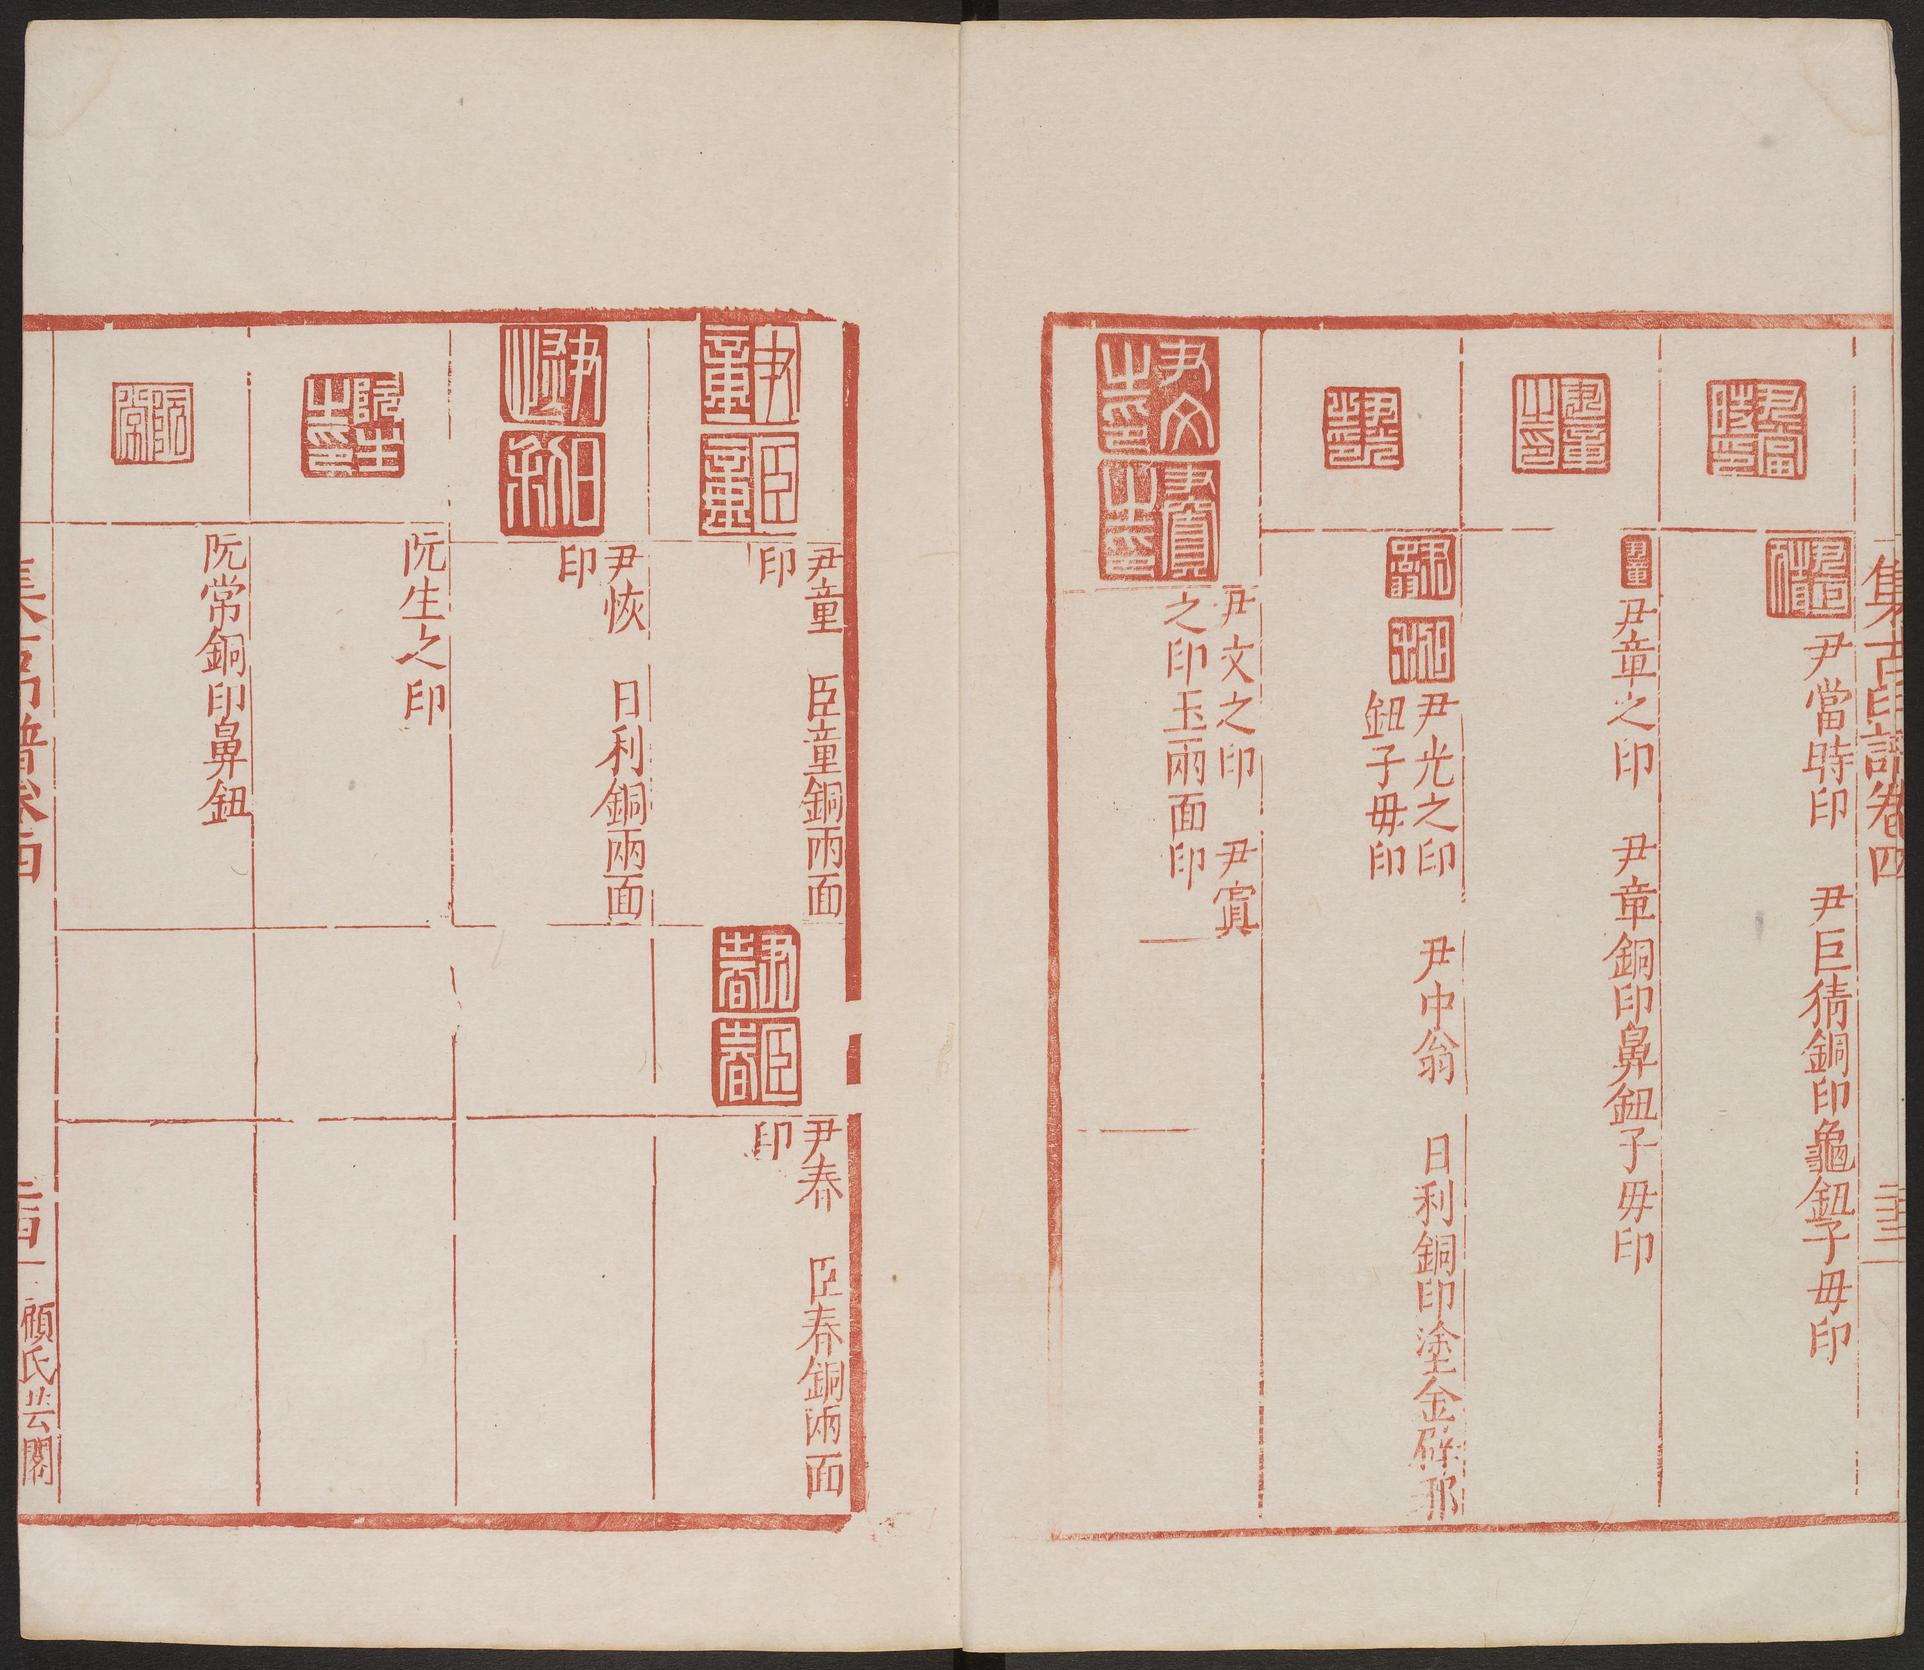 集古印譜卷四
尹當時印　尹巨猜銅印龜鈕子母印
尹章之印　尹章銅印鼻鈕子母印
尹光之印　尹中翁　日利銅印塗金辟邪
鈕子母印
尹文之印　尹賓
之印玉兩面印
尹童　臣童銅兩面
印
尹春　臣春銅兩面
印
尹恢　日利銅兩面
印
阮生之印
阮常銅印鼻鈕
集古印譜卷四
顧氏芸閣